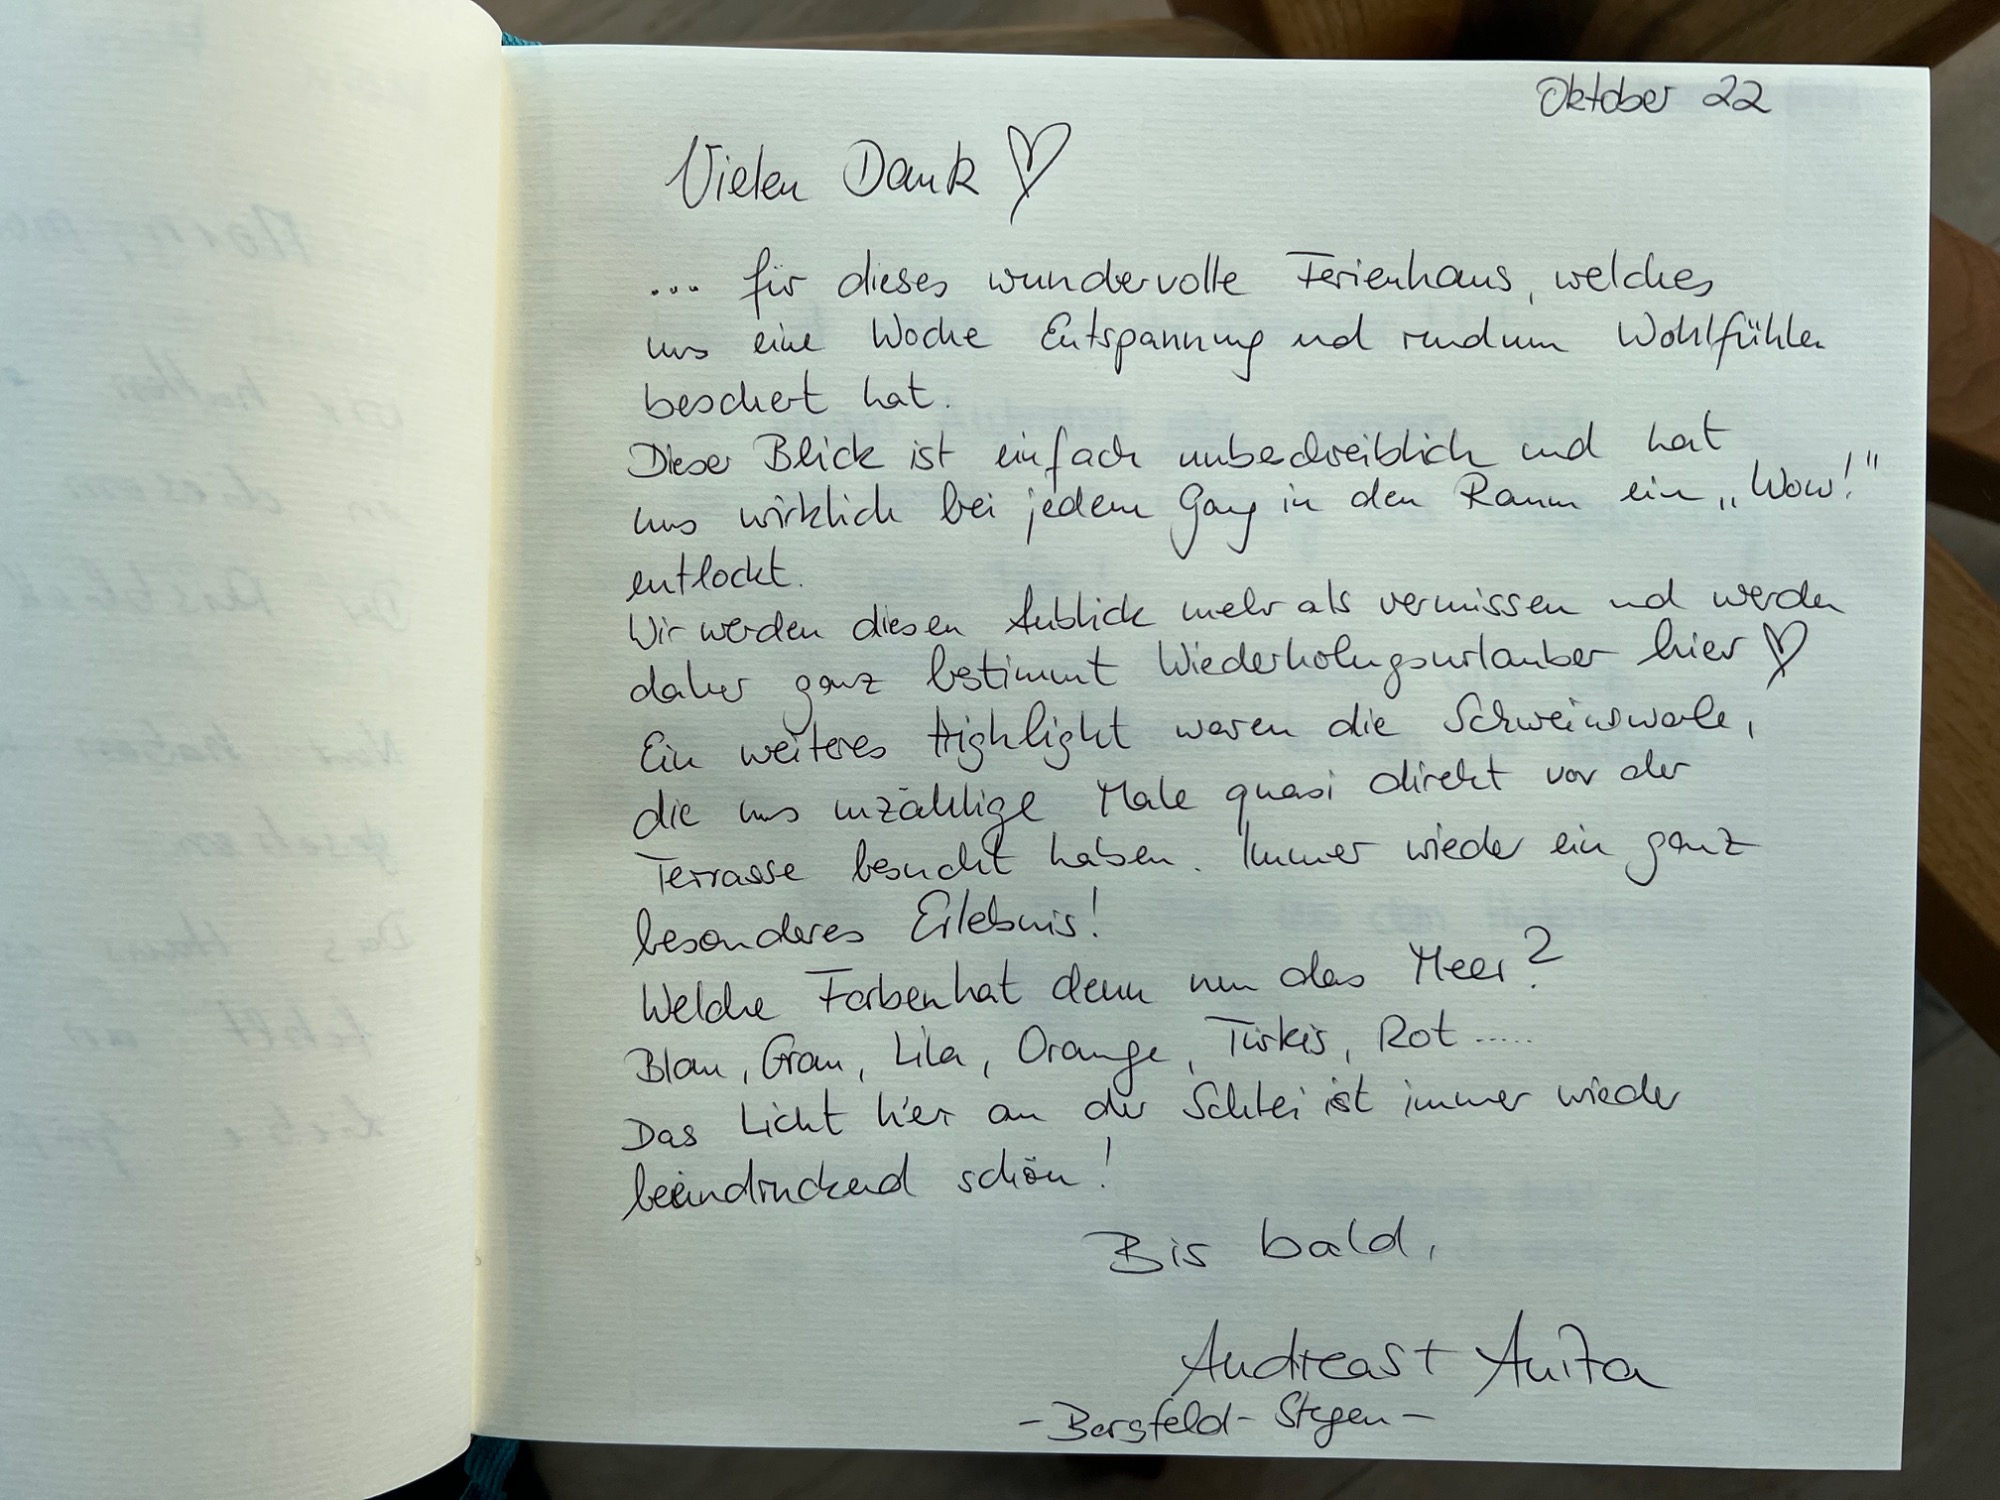 Oktober 22
Vielen Dank ♡
... für dieses wundervolle Ferienhaus, welches
uns eine Woche Entspannung und rundum Wohlfühlen
beschert hat.
Dieser Blick ist einfach unbeschreiblich und hat
uns wirklich bei jedem Gang in den Raum ein „Wow!"
entlockt.
Wir werden diesen Anblick mehr als vermissen und werden
daher ganz bestimmt Wiederholungsurlauber hier ♡
Ein weiteres Highlight waren die Schweinswale,
die uns unzählige Male quasi direkt vor der
Terrasse besucht haben. Immer wieder ein ganz
besonderes Erlebnis!
Welche Farben hat denn nun das Meer?
Blau, Grau, Lila, Orange, Türkis, Rot .....
Das Licht hier an der Schlei ist immer wieder
beeindruckend schön!
Bis bald,
Andreas + Anita
- Bargfeld - Stegen -